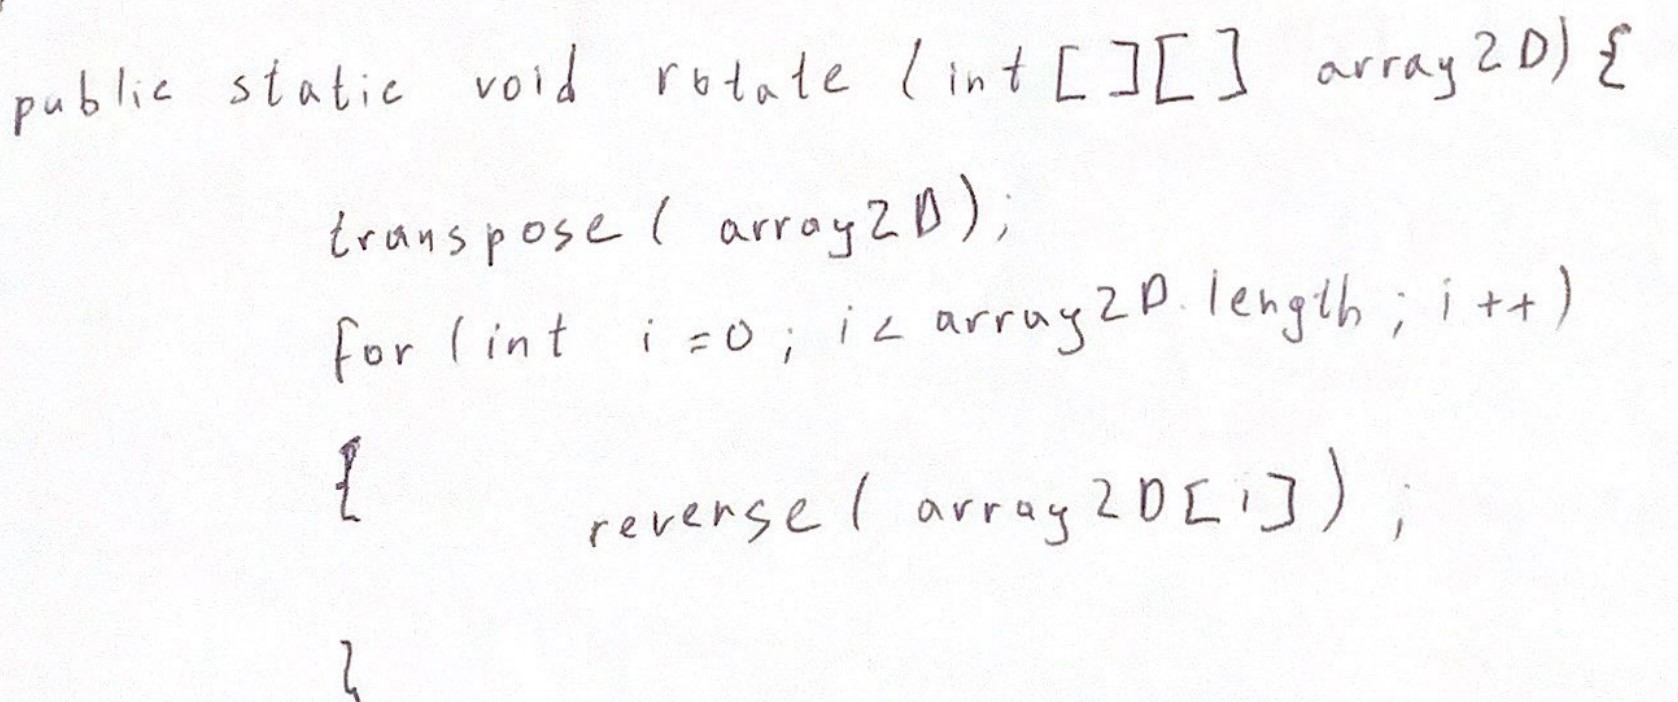 public static void rotate (int[][] array2D) {
transpose( array2D);
for (int i=0; i< array2D.length; i++)
{ reverse( array2D[i]);
}